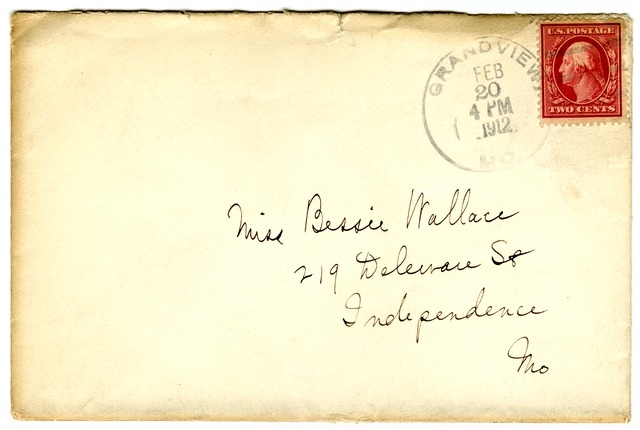 GRANDVIEW
FEB
20
4 PM
1912
MO.
U.S. POSTAGE
TWO CENTS
Miss Bessie Wallace
219 Deleware St
Independence
Mo